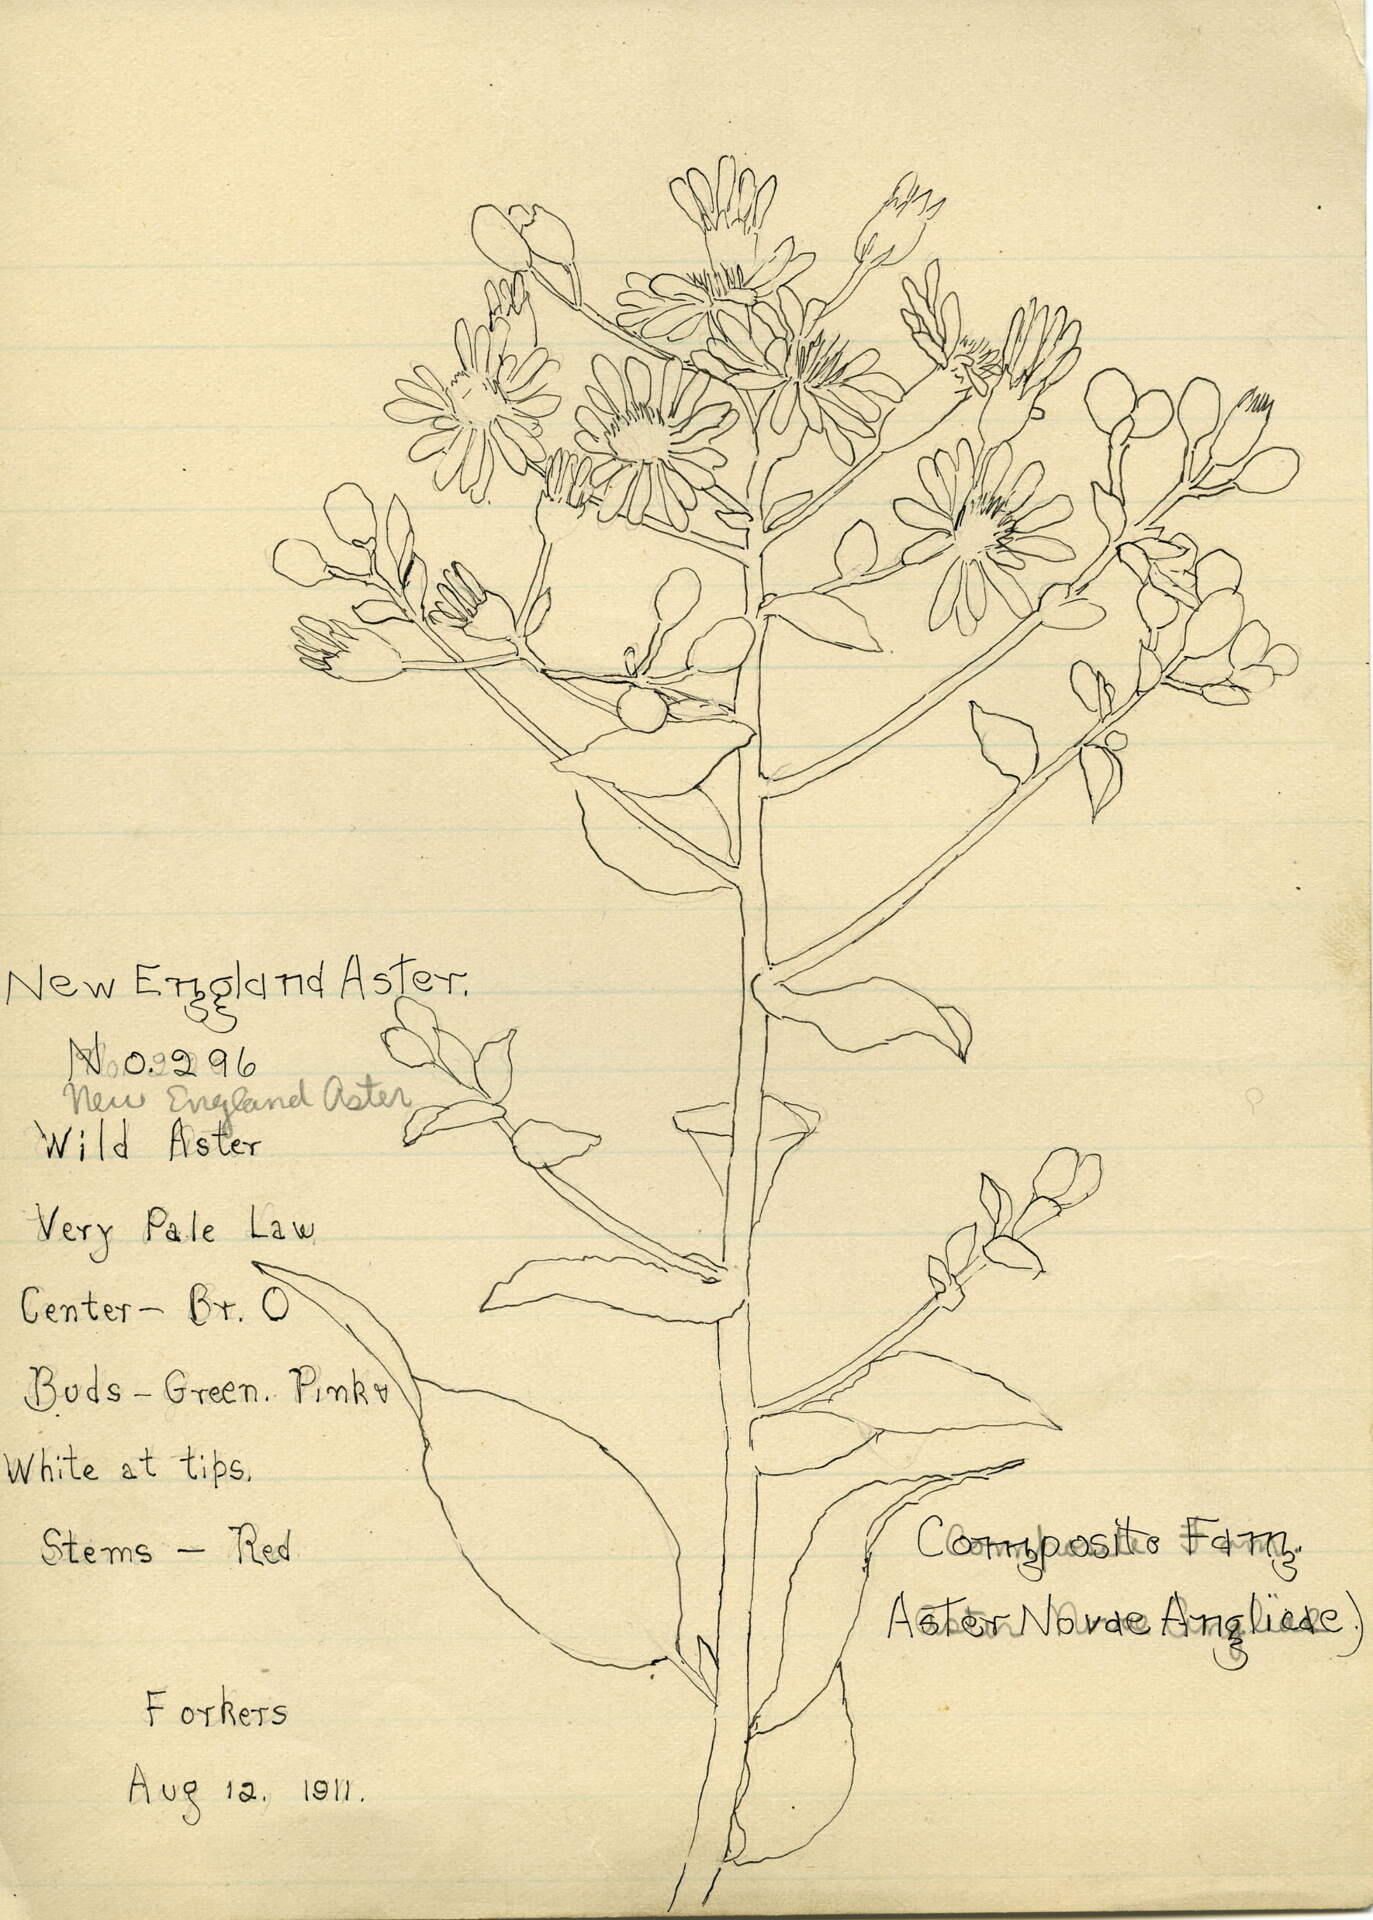 New England Aster.
No. 296
New England Aster
Wild Aster
Very Pale Law
Center – Br. O
Buds – Green. Pink &
White at tips.
Stems – Red
Composite Fam.
Aster Novae Angliae)
Forkers
Aug 12. 1911.